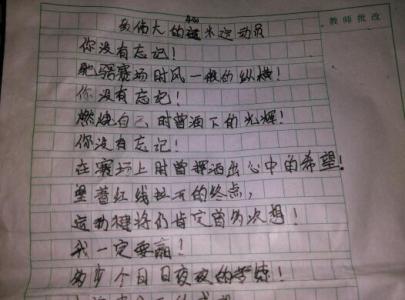 教师批改
伟大的运动员
你没有忘记！
驰骋赛场时风一般的纵横！
你没有忘记！
燃烧自己时曾洒下的光辉！
你没有忘记！
在赛场上时曾挥洒出心中的希望！
望着红线拉开的终点，
运动健将们肯定曾多次想！
我一定要赢！
多少个日日夜夜的苦练！